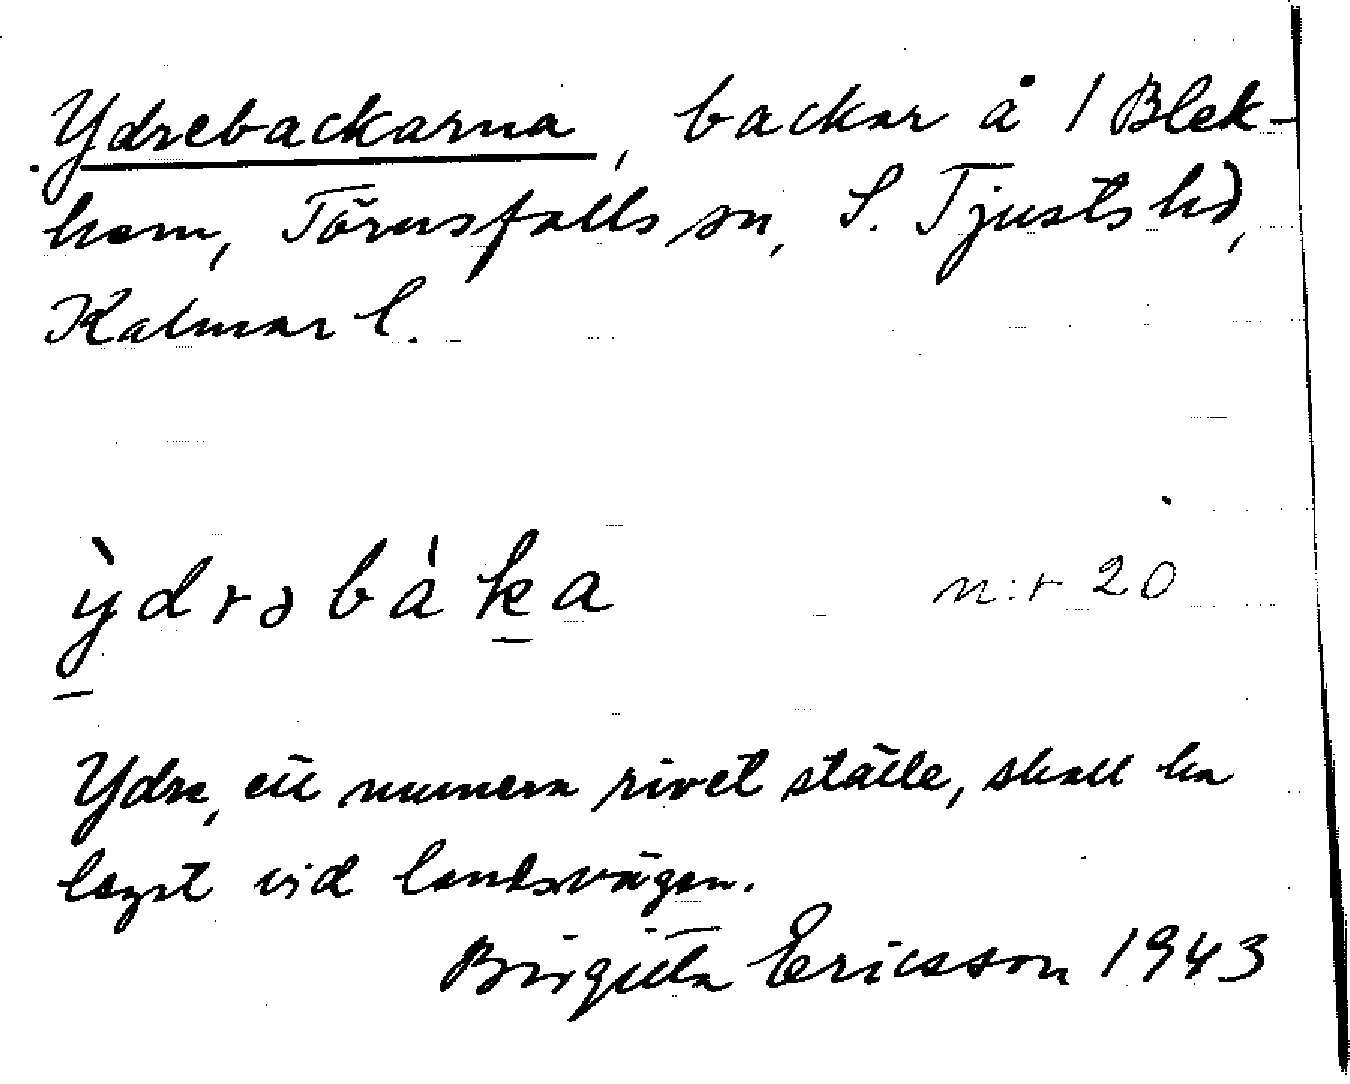 Ydrebackarna, backar å 1 Blek-
hem, Törnsfalls sn, S. Tjusts hd,
Kalmar l.
ỳdrəbáka n:r 20
Ydre, ett numera rivet ställe, skall ha
legat vid landsvägen.
Birgitta Ericsson 1943